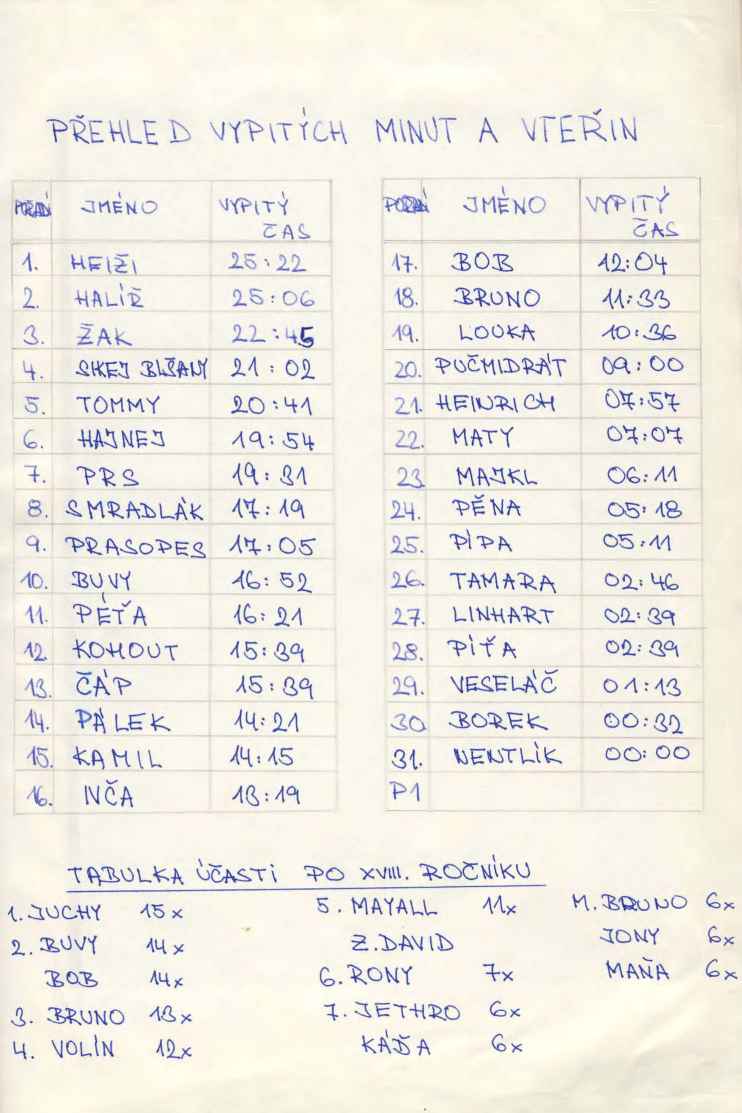 PŘEHLED VYPITÝCH MINUT A VTEŘIN
POŘADÍ JMÉNO VYPITÝ ČAS
1. HEIŽI 25:22
2. HALÍŘ 25:06
3. ŽAK 22:45
4. SKEJ BLŠANY 21:02
5. TOMMY 20:41
6. HAJNEJ 19:54
7. PRS 19:31
8. SMRADLÁK 17:19
9. PRASOPES 17:05
10. BUVY 16:52
11. PÉŤA 16:21
12. KOHOUT 15:39
13. ČÁP 15:39
14. PÁLEK 14:21
15. KAMIL 14:15
16. IVČA 13:19
POŘADÍ JMÉNO VYPITÝ ČAS
17. BOB 12:04
18. BRUNO 11:33
19. LOUKA 10:36
20. PUČMIDRÁT 09:00
21. HEINRICH 07:57
22. MATY 07:07
23 MAJKL 06:11
24. PĚNA 05:18
25. PÍPA 05:11
26. TAMARA 02:46
27. LINHART 02:39
28. PÍŤA 02:39
29. VESELÁČ 01:13
30 BOREK 00:32
31. NENTLÍK 00:00
P1
TABULKA ÚČASTI PO XVIII. ROČNÍKU
1. JUCHY 15x
2. BUVY 14x
BOB 14x
3. BRUNO 13x
4. VOLÍN 12x
5. MAYALL 11x
Z. DAVID
6. RONY 7x
7. JETHRO 6x
KÁĎA 6x
M. BRUNO 6x
JONY 6x
MAŇA 6x